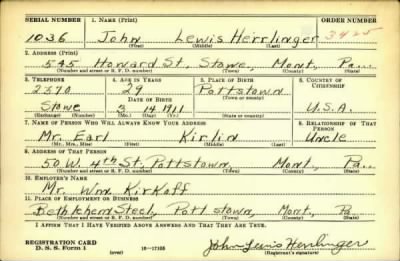 SERIAL NUMBER 1. NAME (Print) ORDER NUMBER
1036 John Lewis Herrlinger 3425
(First) (Middle) (Last)
2. ADDRESS (Print)
545 Howard St, Stowe, Mont, Pa..
(Number and street or R. F. D. number) (Town) (County) (State)
3. TELEPHONE 4. AGE IN YEARS 5. PLACE OF BIRTH 6. COUNTRY OF CITIZENSHIP
2570 29 Pottstown
DATE OF BIRTH (Town or county)
Stowe 3 14 1911 Pa. U.S.A.
(Exchange) (Number) (Mo.) (Day) (Yr.) (State or country)
7. NAME OF PERSON WHO WILL ALWAYS KNOW YOUR ADDRESS 8. RELATIONSHIP OF THAT PERSON
Mr. Earl Kirlin Uncle
(Mr., Mrs., Miss) (First) (Middle) (Last)
9. ADDRESS OF THAT PERSON
50 W. 4th St, Pottstown Mont, Pa..
(Number and street or R. F. D. number) (Town) (County) (State)
10. EMPLOYER'S NAME
Mr. Wm. Kirkoff
11. PLACE OF EMPLOYMENT OR BUSINESS
Bethlehem Steel, Pottstown, Mont, Pa.
(Number and street or R. F. D. number) (Town) (County) (State)
I AFFIRM THAT I HAVE VERIFIED ABOVE ANSWERS AND THAT THEY ARE TRUE.
REGISTRATION CARD
D. S. S. Form 1 (over) 16—17105 John Lewis Herrlinger
(Registrant's signature)